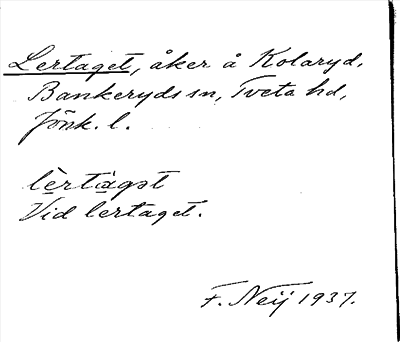 Lertaget, åker å Kolaryd,
Bankeryds sn, Tveta hd,
Jönk. l.
lèrtàgət
Vid lertaget.
F. Neij 1937.